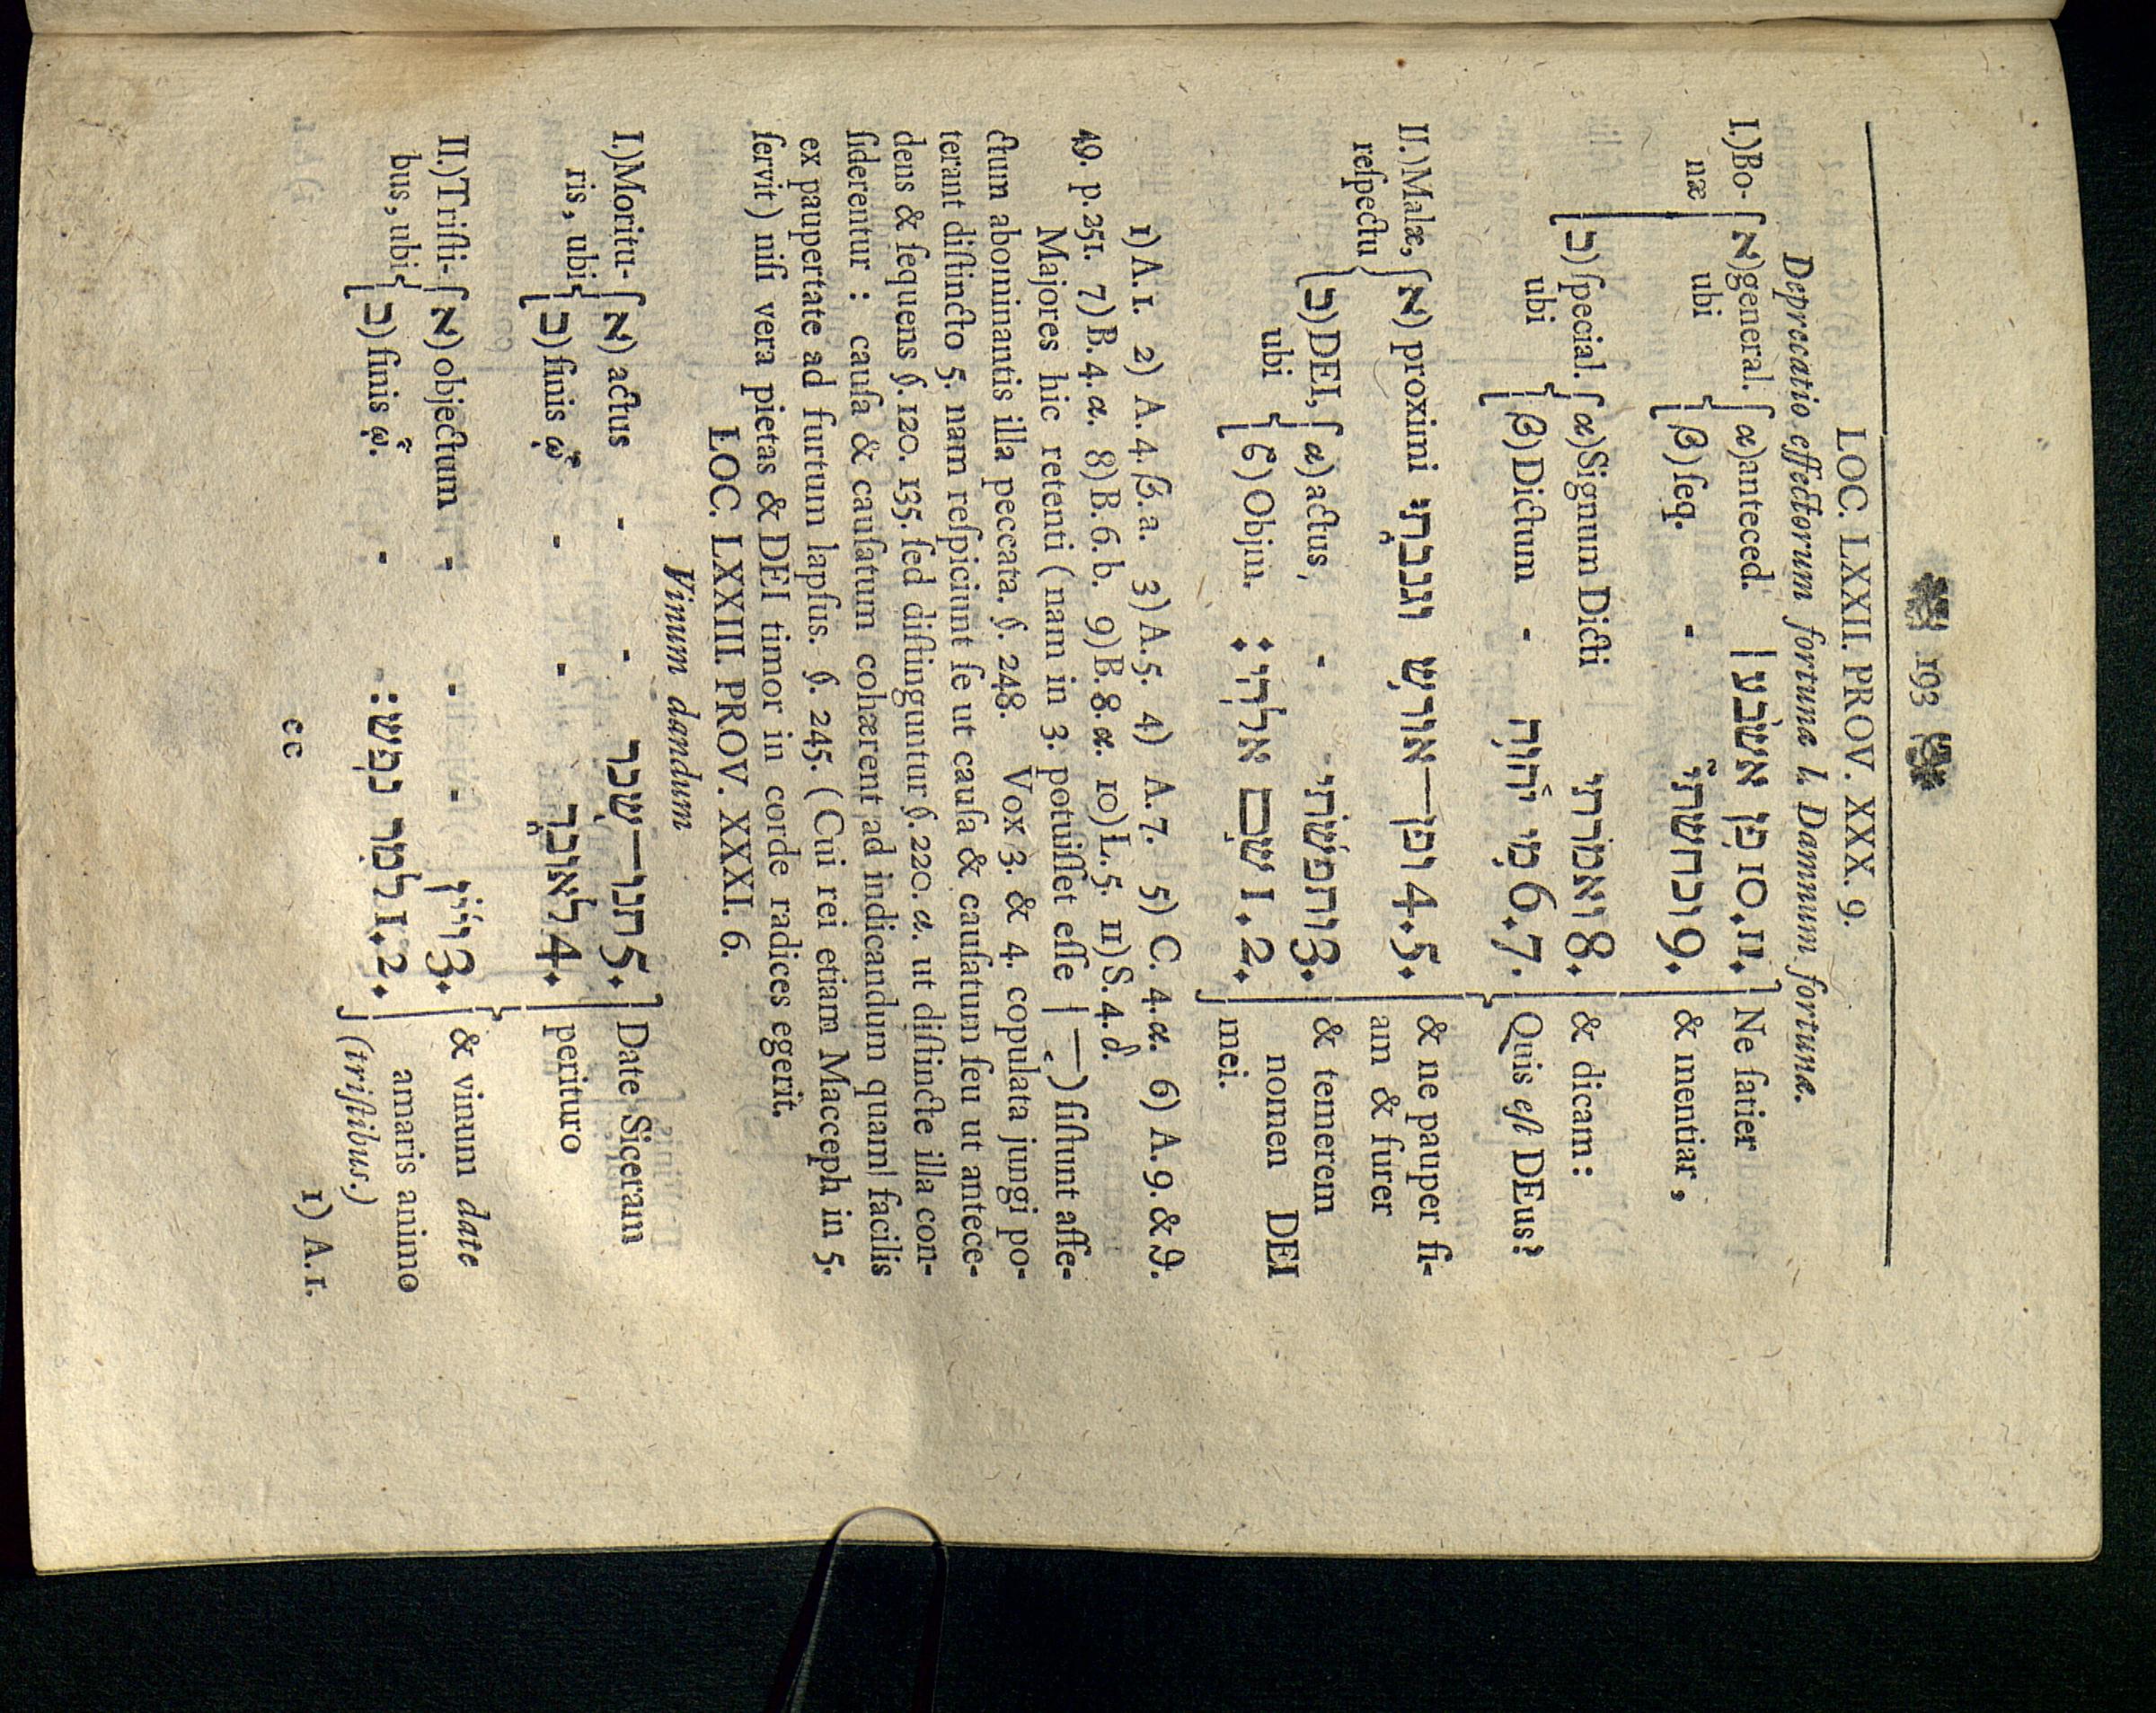 193
LOC. LXXII. PROV. XXX. 9.
Deprecatio effectorum fortunæ l. Damnum fortunæ.
I.) Bo- א) general. α) anteced. פן אשבע 10. 11. Ne ſatier
næ ubi β) ſeq. - וכחשתי 9. & mentiar,
ב) ſpecial. α) Signum Dicti ואמרתי 8. & dicam:
ubi β) Dictum - מי יהוה 6. 7. Quis eſt DEus?
II.) Malæ, א) proximi וגנבתי ופן—אורש 4. 5. & ne pauper fi-
reſpectu am & furer
ב) DEI, α) actus, - ותפשתי 3. & temerem
ubi ϐ) Objm. שם אלהי: 1. 2. nomen DEI
mei.
1) A. 1. 2) A. 4. β. a. 3) A. 5. 4) A. 7. 5) C. 4. α. 6) A. 9. & 9.
49. p. 251. 7) B. 4. α. 8) B. 6. b. 9) B. 8. α. 10) L. 5. 11) S. 4. d.
Majores hic retenti (nam in 3. potuiſſet eſſe ) ſiſtunt affe-
ctum abominantis illa peccata. §. 248. Vox 3. & 4. copulata jungi po-
terant diſtincto 5. nam reſpiciunt ſe ut cauſa & cauſatum ſeu ut antece-
dens & ſequens §. 120. 135. ſed diſtinguntur §. 220. α. ut diſtincte illa con-
ſiderentur : cauſa & cauſatum cohærent ad indicandum quam facilis
ex paupertate ad furtum lapſus. §. 245. (Cui rei etiam Macceph in 5.
ſervit) niſi vera pietas & DEI timor in corde radices egerit.
LOC. LXXIII. PROV. XXXI. 6.
Vinum dandum
I.) Moritu- א) actus - - תנו—שכר 5. Date Siceram
ris, ubi ב) finis ᾧ - - לאובד 4. perituro
II.) Triſti- א) objectum - - - ויין 3. & vinum date
bus, ubi ב) finis ᾧ. - למרי נפש: 1. 2. amaris animo
(triſtibus.)
cc
1) A. 1.